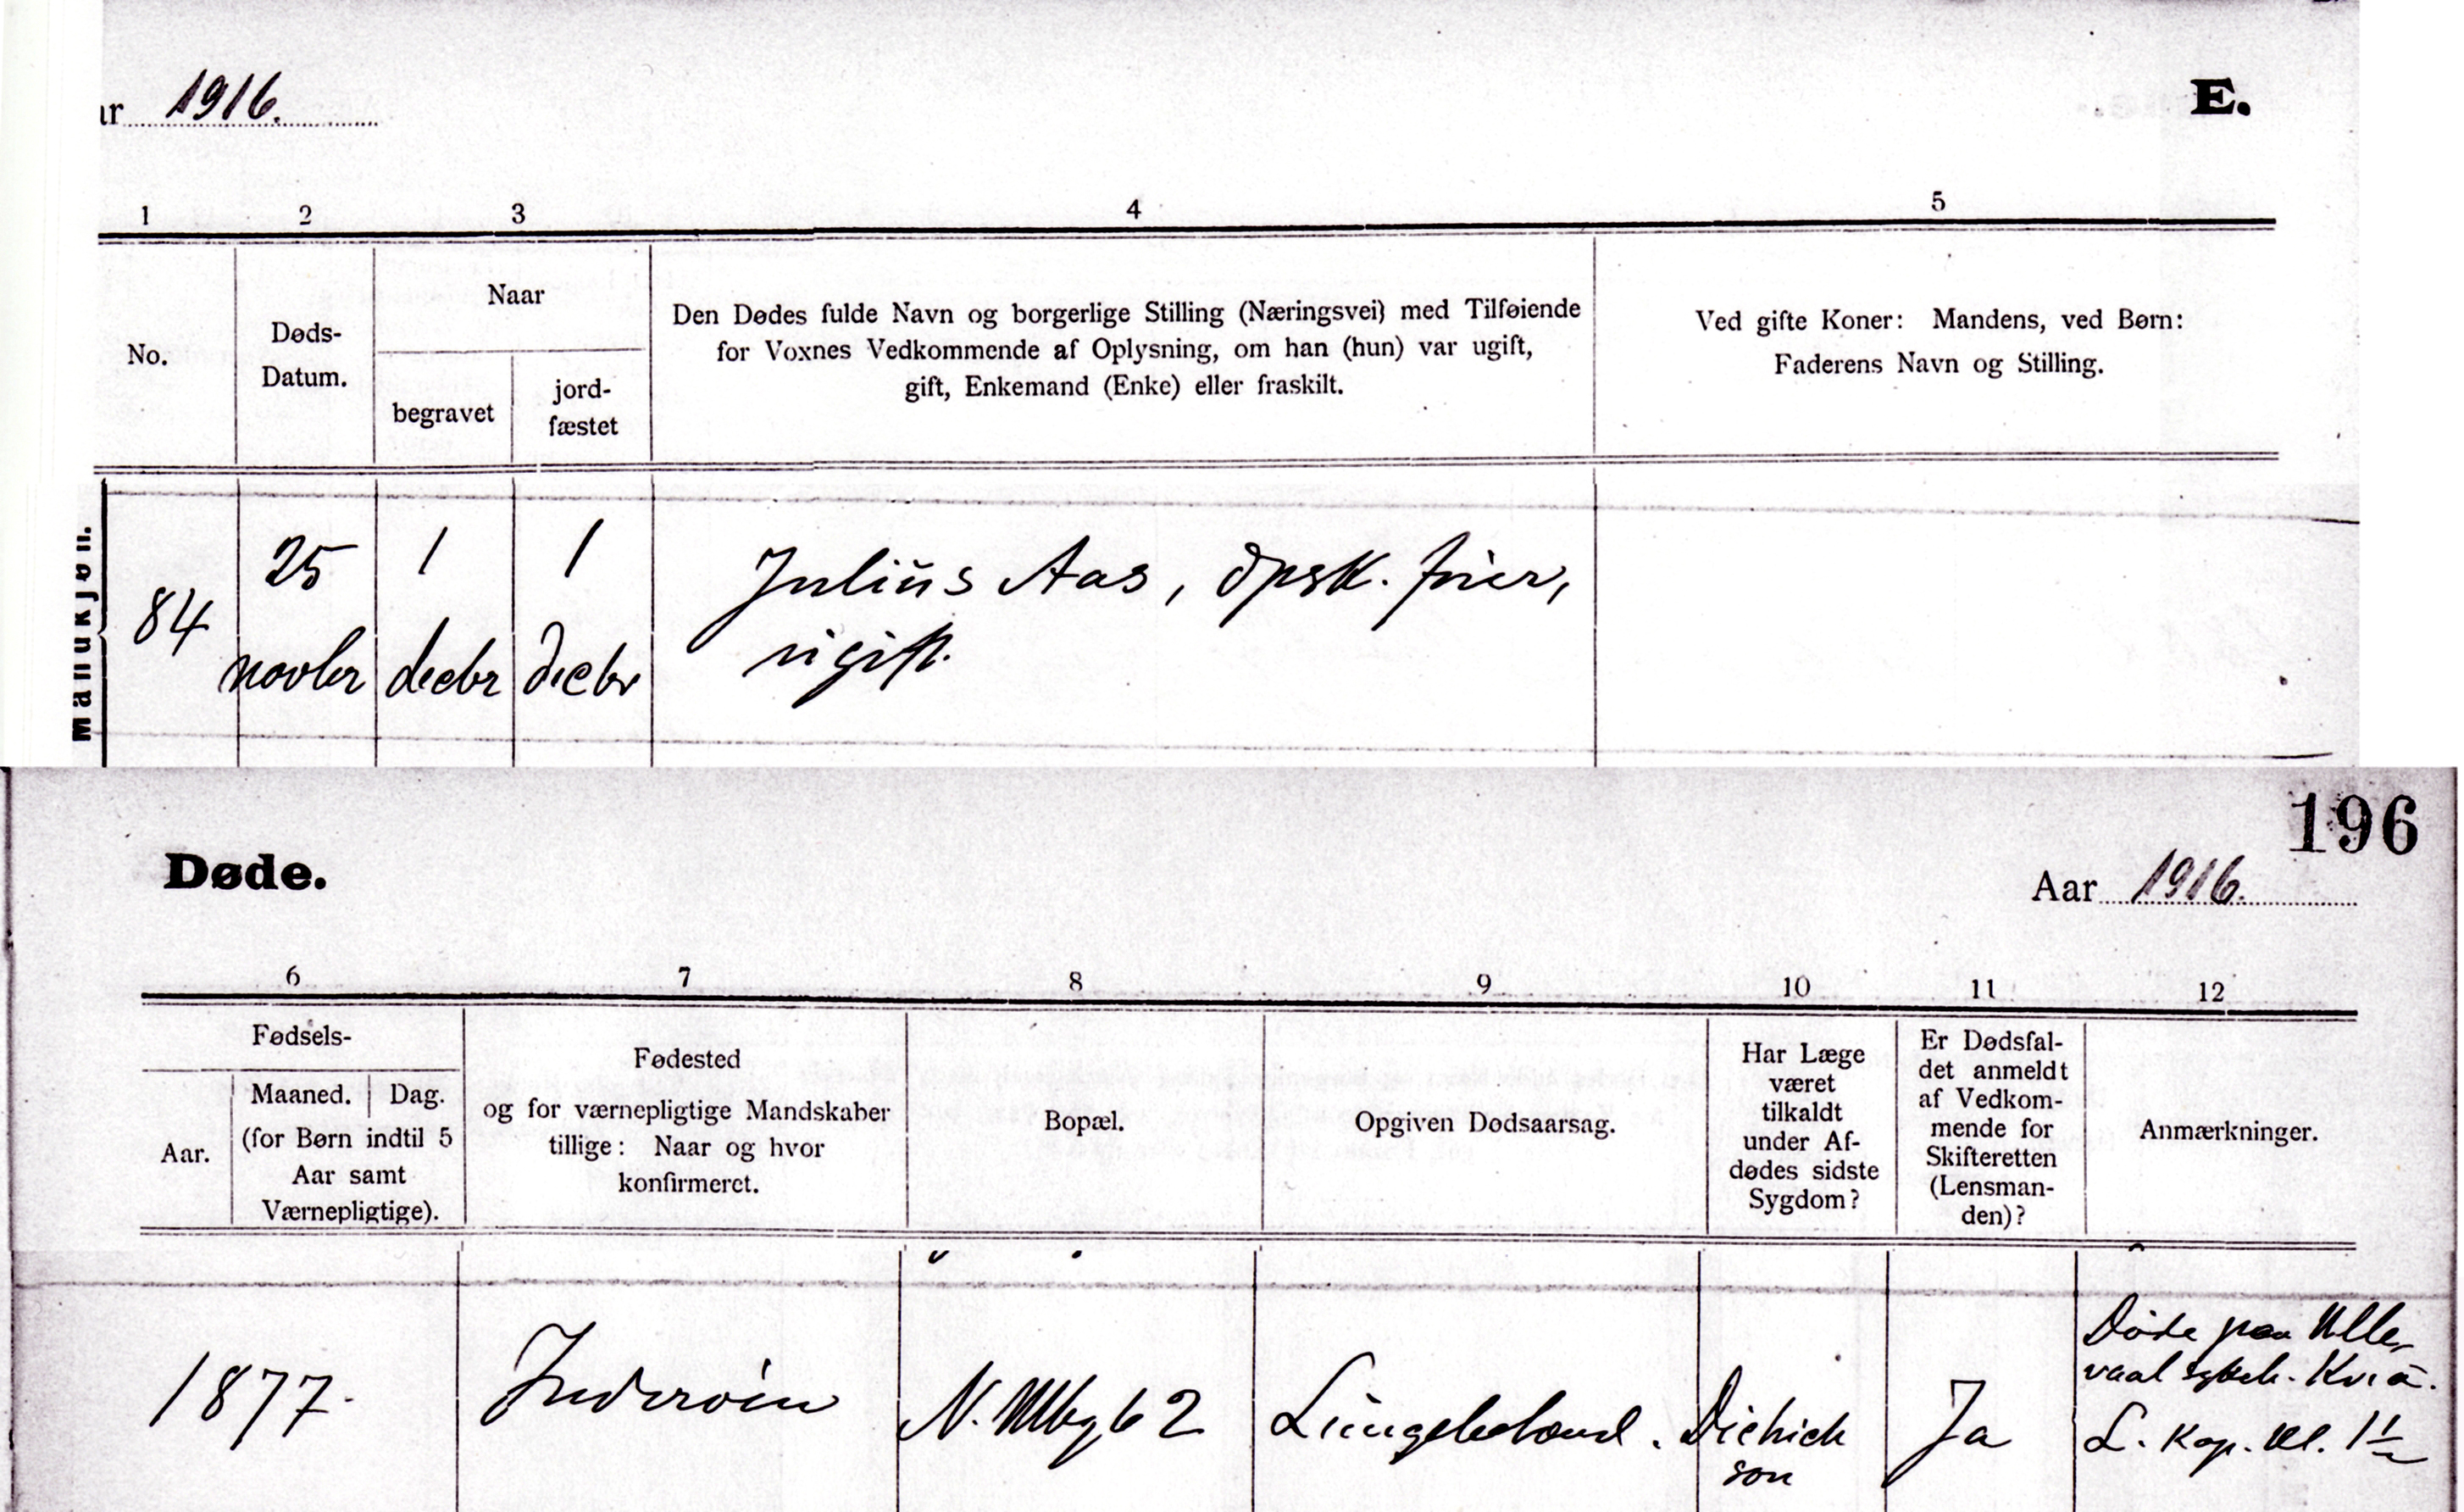 ar 1916.
E.
1 2 3 4 5
No.
Døds-
Datum.
Naar
begravet
jord-
fæstet
Den Dødes fulde Navn og borgerlige Stilling (Næringsvei) med Tilføiende
for Voxnes Vedkommende af Oplysning, om han (hun) var ugift,
gift, Enkemand (Enke) eller fraskilt.
Ved gifte Koner: Mandens, ved Børn:
Faderens Navn og Stilling.
Mandkjøn.
84
25
novbr
1
decbr
1
decbr
Julius Aas, opsk.
ugift.
196
Døde.
Aar 1916.
6 7 8 9 10 11 12
Fødsels-
Aar.
Maaned. Dag.
(for Børn indtil 5
Aar samt
Værnepligtige).
Fødested
og for værnepligtige Mandskaber
tillige: Naar og hvor
konfirmeret.
Bopæl.
Opgiven Dødsaarsag.
Har Læge
været
tilkaldt
under Af-
dødes sidste
Sygdom?
Er Dødsfal-
det anmeldt
af Vedkom-
mende for
Skifteretten
(Lensman-
den)?
Anmærkninger.
1877.
Inderøin
N. 62
Lungebetænd.
Dietrich
son
Ja
Døde paa Ulle-
vaal sykeh.
L. Kap. Kl. 1½